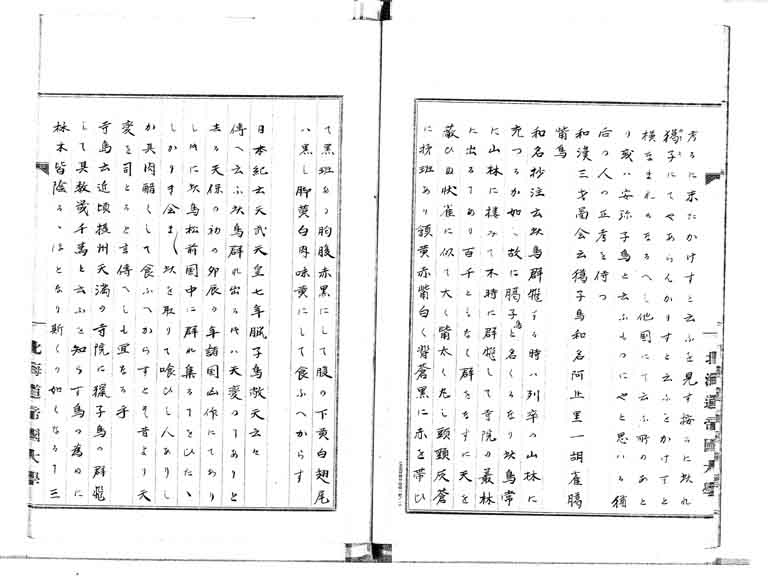 考るに未たかけすと云ふを見す按るに此れ
獦子にてやあらんかけすと云ふとかけすと
横なまれるなるへし他国にて云ふ所のあと
り或ハ安弥子鳥と云ふものにやと思いる猶
后の人の正考を侍つ
和漢三才図会云獦子鳥和名阿止里一胡雀臈
觜鳥
和名抄注云此鳥群飛する時ハ列卒の山林に
充つるか如し故に臈子鳥と名くるなり此鳥常
に山林に棲みて不時に群飛して寺院の叢林
に出るてあり百千ともなく群をなすに天を
蔽ひ日状雀に似て大く觜太く尤し頭頸灰蒼
に持班あり頷黄赤觜白く背蒼黒に赤を帯ひ
て黒班あり胸腹赤黒にして腹の下黄白翅尾
ハ黒し脚黄白肉味黄にして食ふへからす
日本紀云天武天皇七年臈子鳥敝天云々
傳へ云ふ此鳥群れ出る時ハ天変のてありと
去る天保の初の卯辰の年諸国凶作にてあり
し時に此鳥松前国中に群れ集るてをひたゝ
しかりす会ま〱此を取りて喰ひし人ありし
か其肉酷くして食ふへからすとそ昔より天
変を司とると言傳へしも宜なる乎
寺島云近頃摂州天満の寺院に獵子鳥の群飛
して其数幾千萬と云ふと知らす鳥の為めに
林木皆陰るゝほとなり斯くの如くなるて三
北海道帝國大學
北海道帝國大學